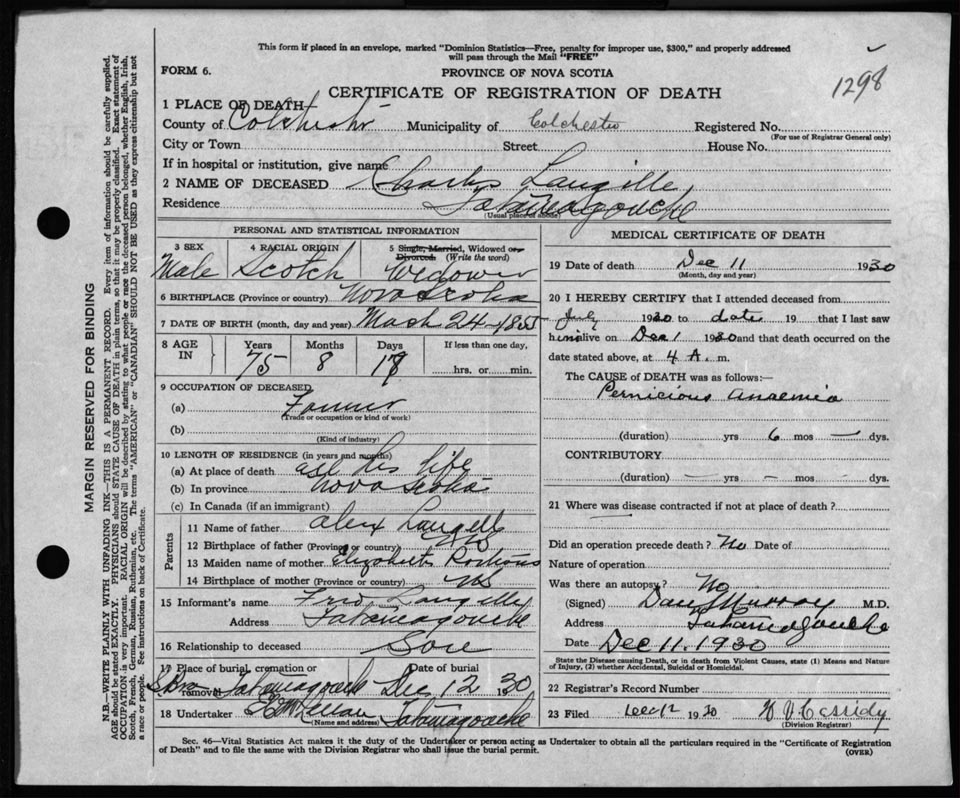 This form if placed in an envelope, marked "Dominion Statistics—Free, penalty for improper use, $300," and properly addressed
will pass through the Mail "FREE"
FORM 6.
PROVINCE OF NOVA SCOTIA
1298
CERTIFICATE OF REGISTRATION OF DEATH
1 PLACE OF DEATH
County of Colchester Municipality of Colchester Registered No.
(For use of Registrar General only)
City or Town Street House No.
If in hospital or institution, give name
2 NAME OF DECEASED Charles Langille
Residence Tatamagouche
(Usual place of abode)
PERSONAL AND STATISTICAL INFORMATION
3 SEX 4 RACIAL ORIGIN 5 Single, Married, Widowed or Divorced (Write the word)
Male Scotch Widower
6 BIRTHPLACE (Province or country) Nova Scotia
7 DATE OF BIRTH (month, day and year) Mach 24-1855
8 AGE IN Years Months Days If less than one day,
75 8 17 hrs. or min.
9 OCCUPATION OF DECEASED
(a) Farmer
(Trade or occupation or kind of work)
(b)
(Kind of industry)
10 LENGTH OF RESIDENCE (in years and months)
(a) At place of death all his life
(b) In province Nova Scotia
(c) In Canada (if an immigrant)
Parents
11 Name of father Alex Langille
12 Birthplace of father (Province or country) NS
13 Maiden name of mother Elizabeth
14 Birthplace of mother (Province or country) NS
15 Informant's name Fred Langille
Address Tatamagouche
16 Relationship to deceased Son
17 Place of burial, cremation or removal Tatamagouche Date of burial Dec 12 1930
18 Undertaker McLellan Tatamagouche
(Name and address)
MEDICAL CERTIFICATE OF DEATH
19 Date of death Dec 11 1930
(Month, day and year)
20 I HEREBY CERTIFY that I attended deceased from
July 1930 to date 19 that I last saw
him alive on Dec 1 1930 and that death occurred on the
date stated above, at 4 A. m.
The CAUSE of DEATH was as follows:
Pernicious Anaemia
(duration) yrs 6 mos — dys.
CONTRIBUTORY
(duration) — yrs — mos — dys.
21 Where was disease contracted if not at place of death?
Did an operation precede death? No Date of
Nature of operation
Was there an autopsy? No
(Signed) Dan Murray M.D.
Address Tatamagouche
Date Dec 11. 1930
State the Disease causing Death, or in death from Violent Causes, state (1) Means and Nature
of Injury, (2) whether Accidental, Suicidal or Homicidal.
22 Registrar's Record Number
23 Filed Dec 12 1930 Cassidy
(Division Registrar)
Sec. 46—Vital Statistics Act makes it the duty of the Undertaker or person acting as Undertaker to obtain all the particulars required in the "Certificate of Registration
of Death" and to file the same with the Division Registrar who shall issue the burial permit. (OVER)
MARGIN RESERVED FOR BINDING
N.B.—WRITE PLAINLY WITH UNFADING INK—THIS IS A PERMANENT RECORD. Every item of information should be carefully supplied.
AGE should be stated EXACTLY. PHYSICIANS should STATE CAUSE OF DEATH in plain terms, so that it may be properly classified. Exact statement of
OCCUPATION is very important. RACIAL ORIGIN will be described by stating to what people or race the deceased person belonged, whether English, Irish,
Scotch, French, German, Russian, Ruthenian, etc. The terms "AMERICAN" or "CANADIAN" SHOULD NOT BE USED as they express citizenship but not
a race or people. See instructions on back of Certificate.